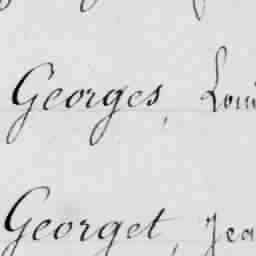 Georges, Loui
Georget, Jea